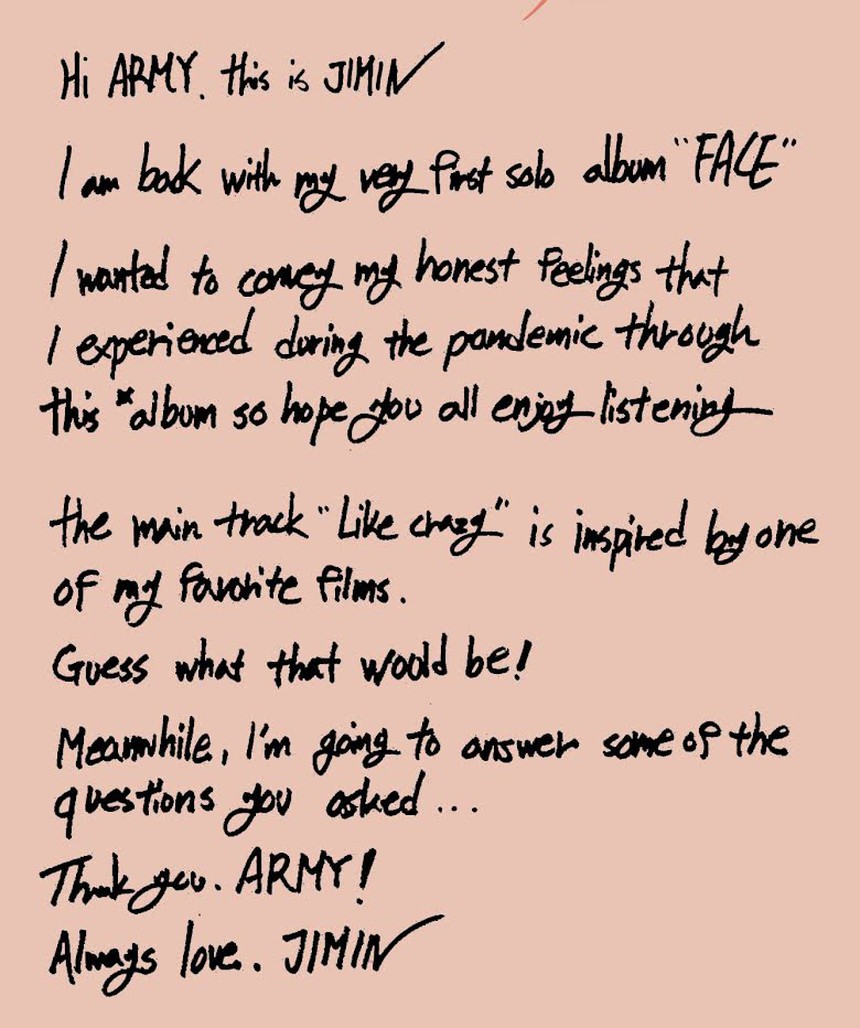 Hi ARMY. this is JIMIN
I am back with my very first solo album "FACE"
I wanted to convey my honest feelings that
I experienced during the pandemic through
this *album so hope you all enjoy listening
the main track "Like crazy" is inspired by one
of my favorite films.
Guess what that would be!
Meanwhile, I'm going to answer some of the
questions you asked...
Thank you. ARMY!
Always love. JIMIN